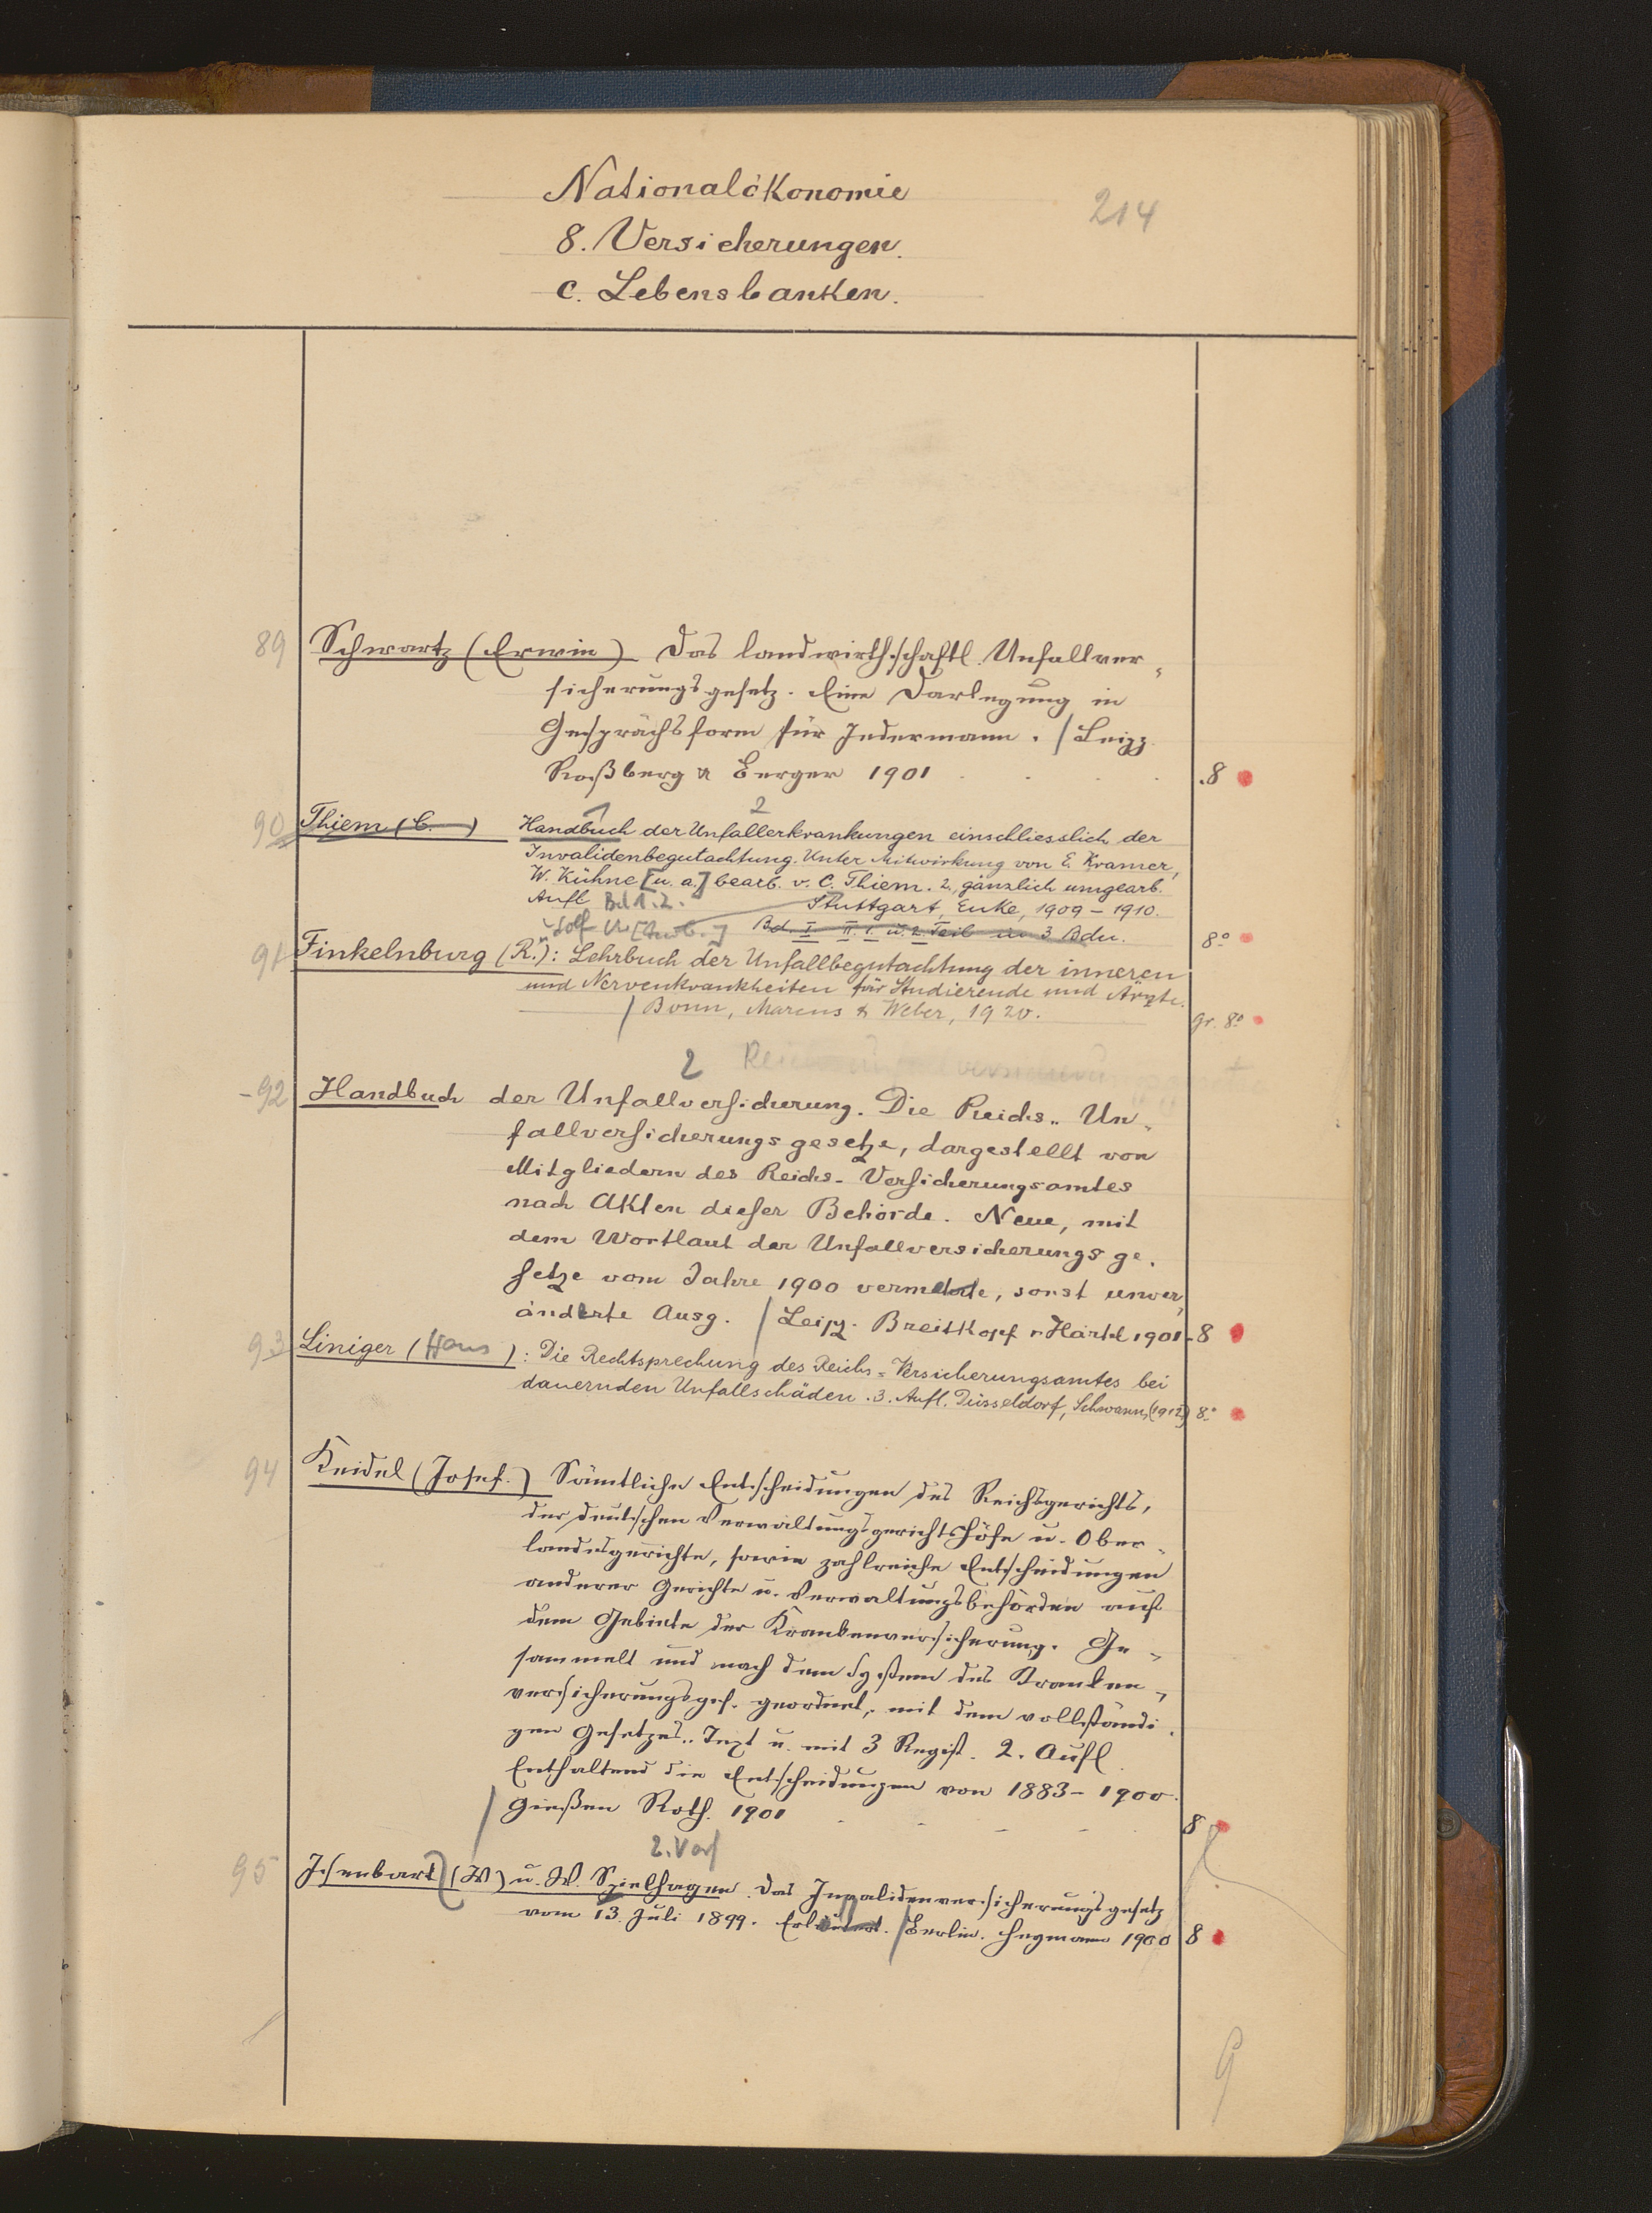 Nationalökonomie
214
8. Versicherungen.
c. Lebensbanken.
89 Schwartz (Erwin) Das landwirthschaftl. Unfallver-
sicherungsgesetz. Eine Darlegung in
Gesprächsform für Jedermann. / Leipz.
Roßberg & Berger 1901 . . . 8
2
90 Thiem (C. ) Handbuch der Unfallerkrankungen einschliesslich der
Invalidenbegutachtung. Unter Mitwirkung von E. Kramer,
W. Kühne [u. a.] bearb. v. C. Thiem. 2., gänzlich umgearb.
Aufl. Bd 1. 2. Stuttgart, Enke, 1909 - 1910.
Bd. I. II. 1. u. 2. Teil in 3 Bdn. 8°
91 Finkelnburg (R.): Lehrbuch der Unfallbegutachtung der inneren
und Nervenkrankheiten für Studierende und Ärzte.
/ Bonn, Marcus & Weber, 1920. gr. 8°
2
- 92 Handbuch der Unfallversicherung. Die Reichs-Un-
fallversicherungsgesetze, dargestellt von
Mitgliedern des Reichs-Versicherungsamtes
nach Akten dieser Behörde. Neue, mit
dem Wortlaut der Unfallversicherungsge-
setze vom Jahre 1900 vermehrte, sonst unver-
änderte Ausg. / Leipz. Breitkopf & Härtel 1901 - 8
93 Liniger (Hans): Die Rechtsprechung des Reichs-Versicherungsamtes bei
dauernden Unfallschäden. 3. Aufl. Düsseldorf, Schwann, (1912) 8°
94 Keidel (Josef.) Sämtliche Entscheidungen des Reichsgerichts,
der deutschen Verwaltungsgerichtshöfe u. Ober-
landesgerichte, sowie zahlreiche Entscheidungen
anderer Gerichte u. Verwaltungsbehörden auf
dem Gebiete der Krankenversicherung. Ge-
sammelt und nach dem System des Kranken-
versicherungsges. geordnet, mit dem vollständi-
gen Gesetzes-Text u. mit 3 Regist. 2. Aufl.
Enthaltend die Entscheidungen von 1883 - 1900.
/ Gießen Roth. 1901 - - - - 8
2. Verf
95 Isenbart (W) u. W. Spielhagen. Das Invalidenversicherungsgesetz
vom 13. Juli 1899. Erläutert. / Berlin. Heymann 1900 8